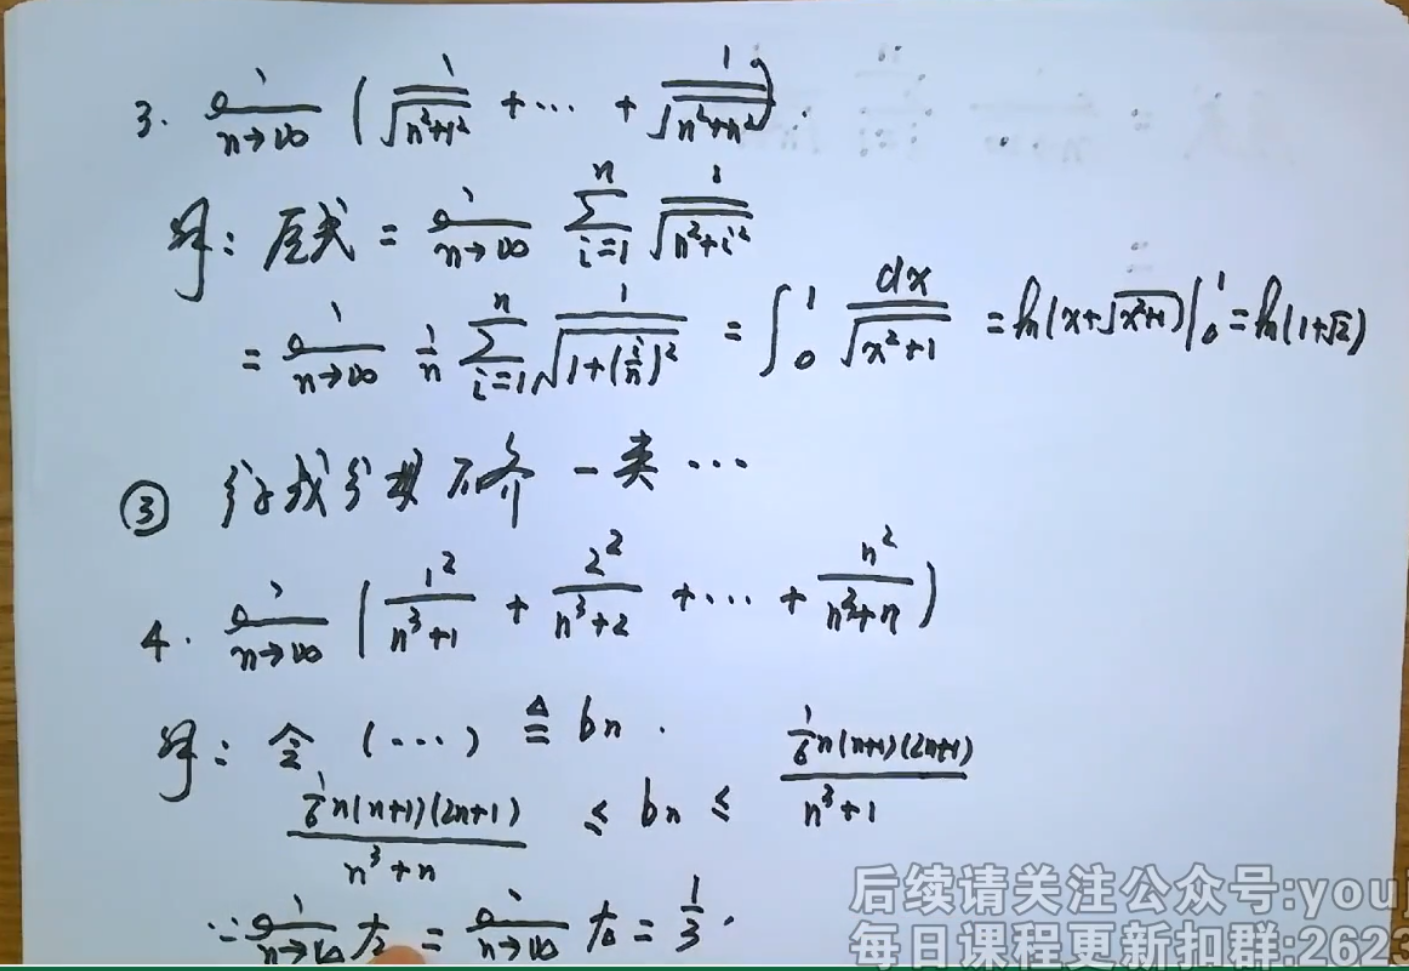 3. lim n→∞ (1/√(n²+1²) + ··· + 1/√(n²+n²)).
解: 原式 = lim n→∞ ∑_{i=1}^{n} 1/√(n²+i²)
= lim n→∞ 1/n ∑_{i=1}^{n} 1/√(1+(i/n)²) = ∫₀¹ dx/√(x²+1) = ln(x+√(x²+1))|₀¹ = ln(1+√2)
③ 分子或分母不齐一类···
4. lim n→∞ (1²/(n³+1) + 2²/(n³+2) + ··· + n²/(n³+n))
解: 令 (···) ≜ bn.
1/6 n(n+1)(2n+1)/(n³+n) ≤ bn ≤ 1/6 n(n+1)(2n+1)/(n³+1)
∵ lim n→∞ 左 = lim n→∞ 右 = 1/3.
后续请关注公众号:youj
每日课程更新扣群:2623